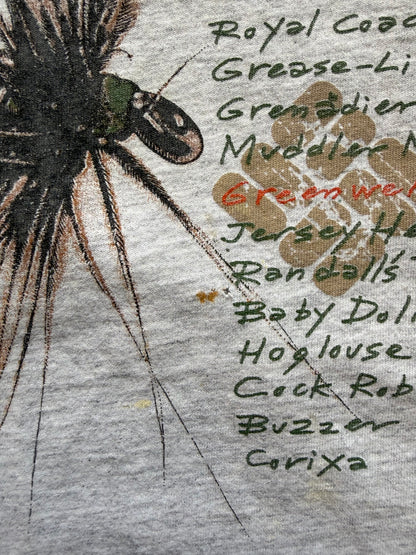 Royal Coac
Grease-Li
Grenadier
Muddler M
Greenwel
Jersey He
Randall's
Baby Doll
Hoglouse
Cock Rob
Buzzer
Corixa